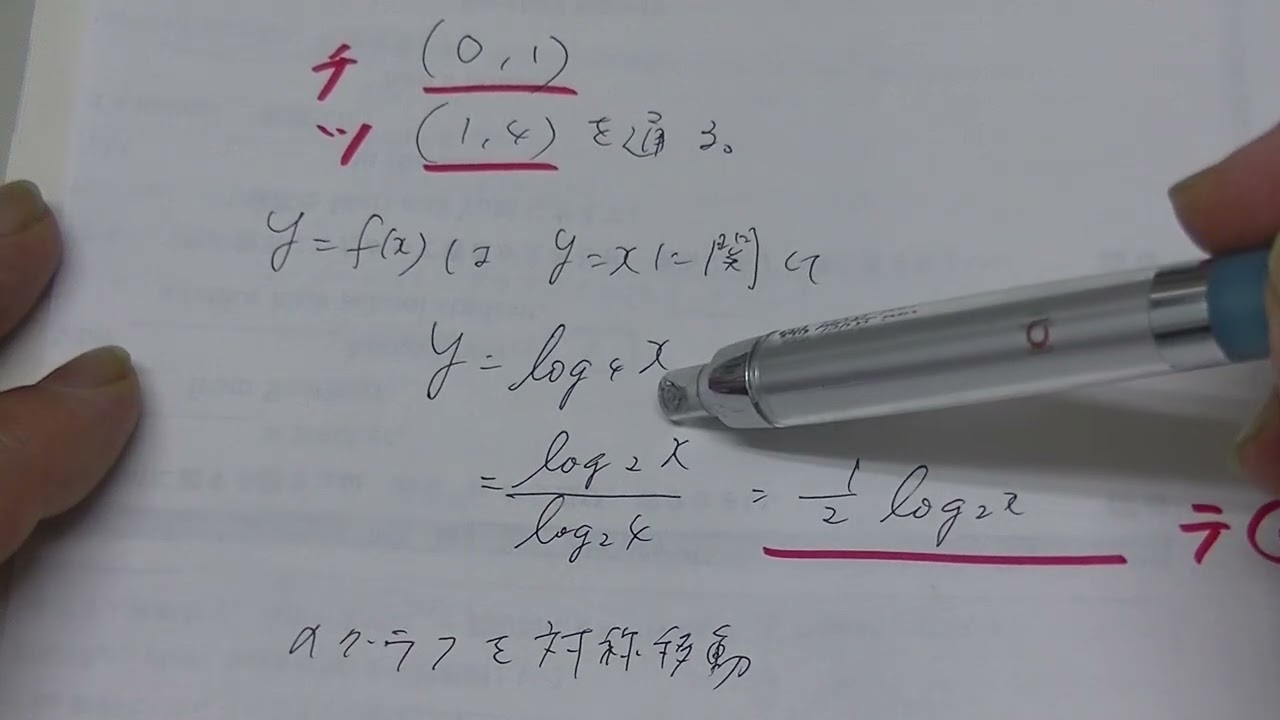 チ (0, 1)
ツ (1, 4) を通る。
y = f(x) は y = x に関して
y = log₄ x
= log₂ x / log₂ 4 = 1/2 log₂ x テ
のグラフを対称移動